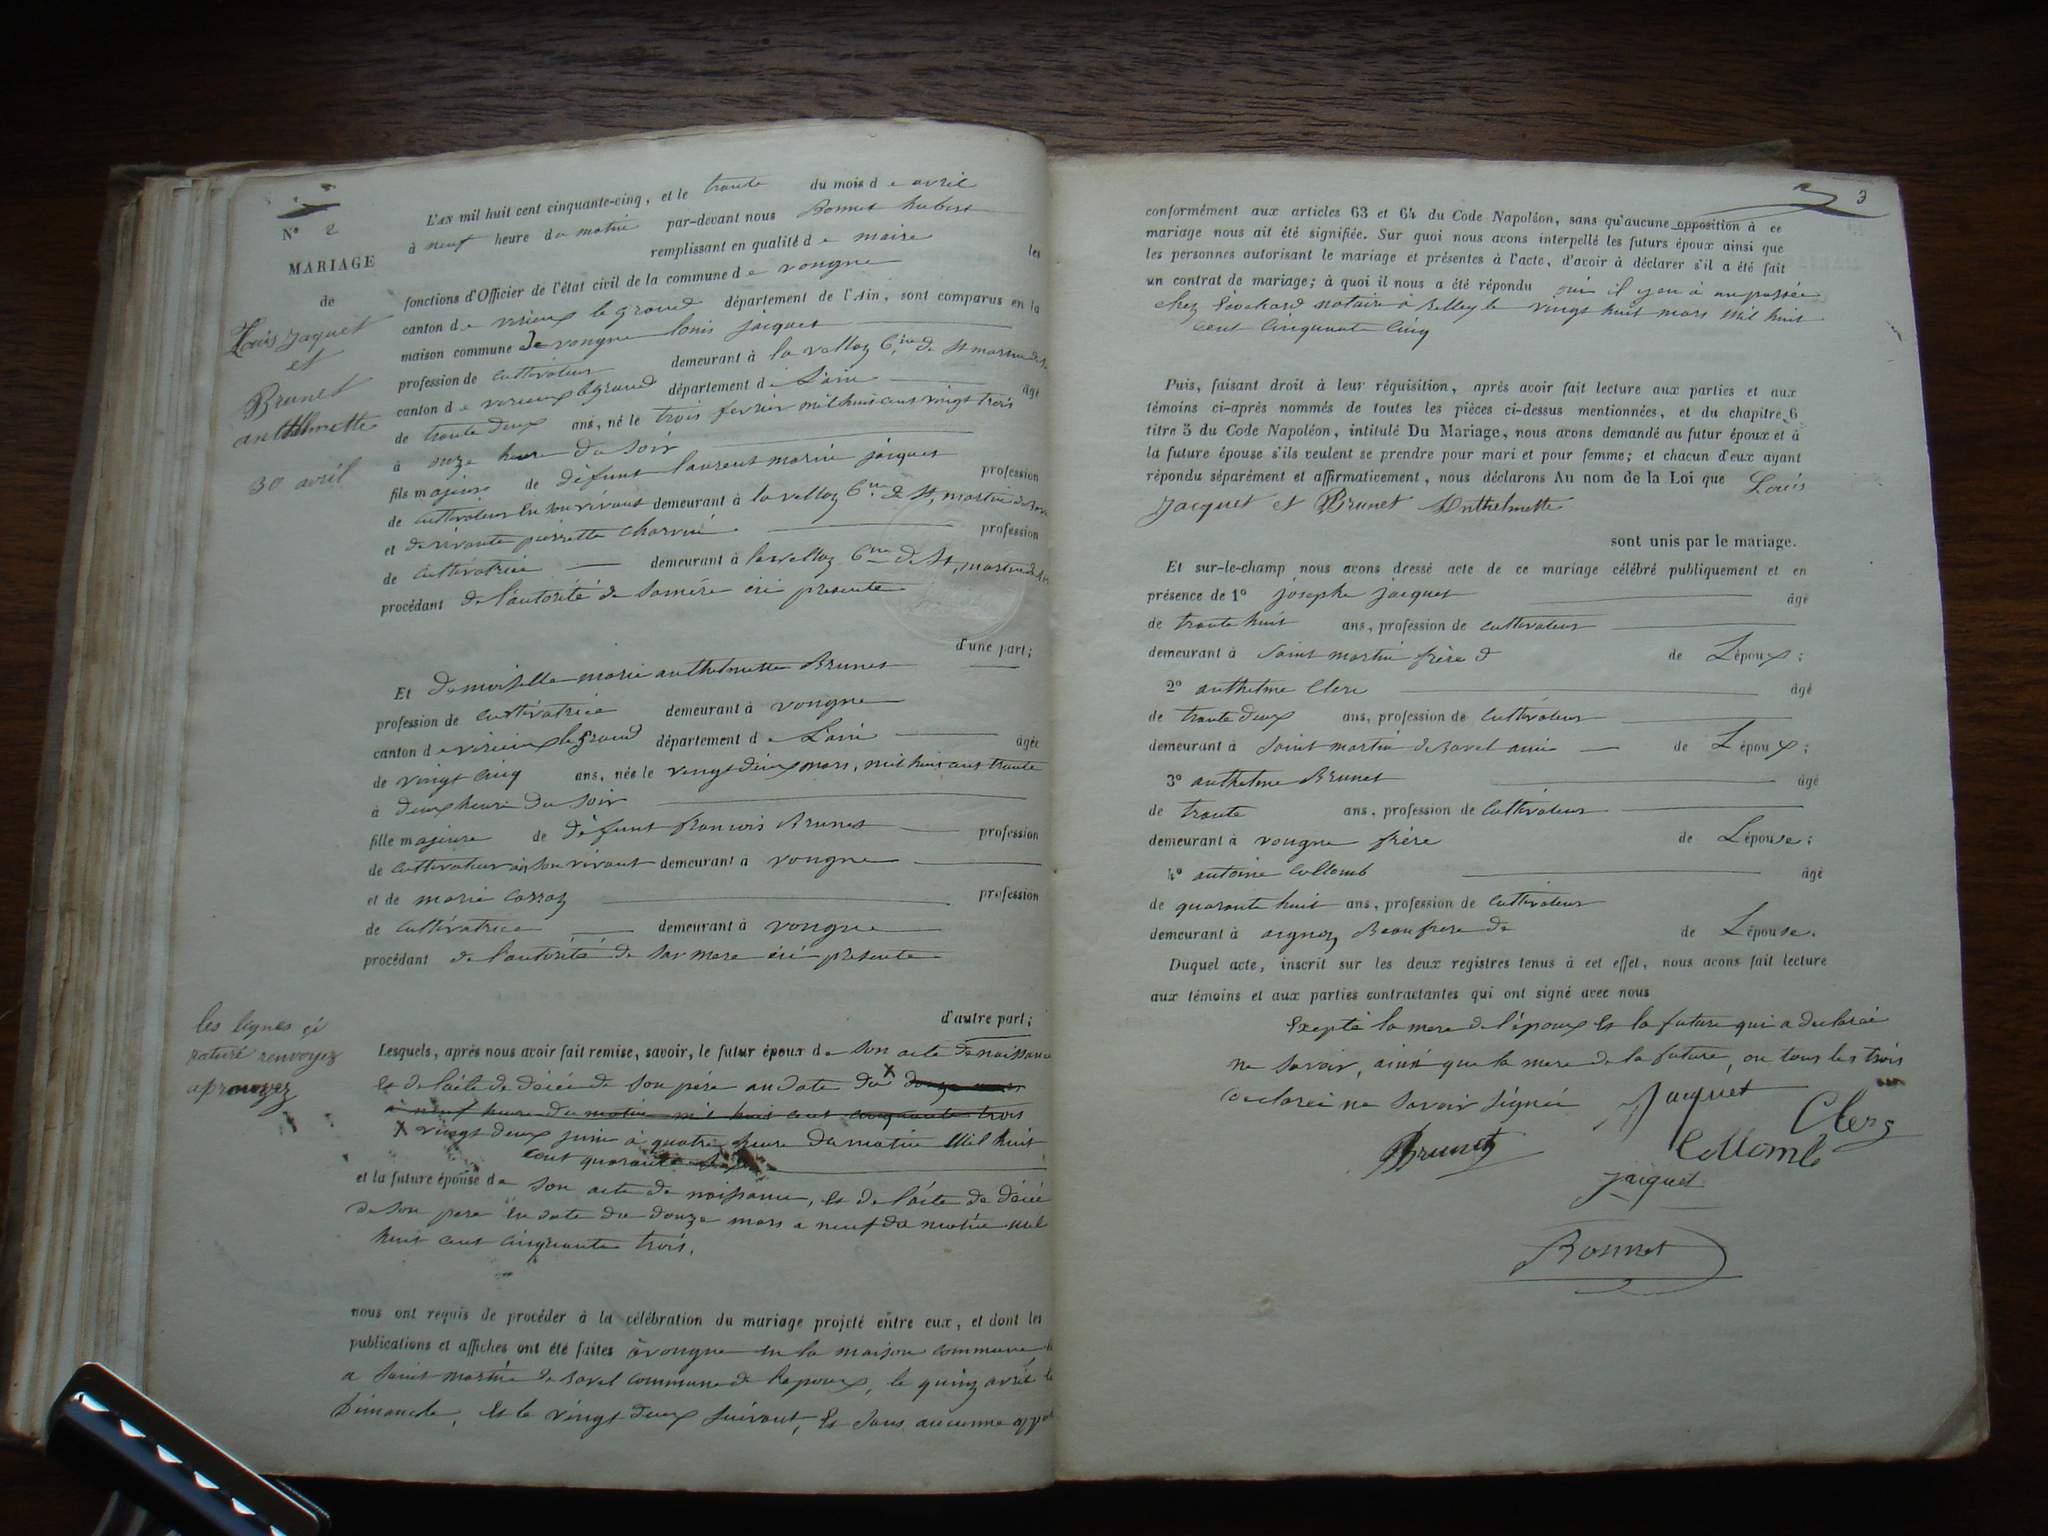 N° 2
MARIAGE
de
Louis Jaquet
et
Brunet
anthelmette
30 avril
L'AN mil huit cent cinquante-cinq, et le trante du mois d e avril
à neuf heure du matin par-devant nous Bonnet hubert
remplissant en qualité d e maire les
fonctions d'Officier de l'état civil de la commune d e vongne
canton d e virieux le grand département de l'Ain, sont comparus en la
maison commune de vongne louis jacquet
profession de cultivateur demeurant à la vellaz Cne de St martin de
canton d e virieux le grand département d e L'ain âgé
de trante deux ans, né le trois fevrier mil huis cent vingt trois
à onze heure du soir
fils majeur de défunt laurent marin jacquet profession
de cultivateur en son vivant demeurant à la vellaz Cne de St, martin de
et de vivante pierrette Charvin profession
de cultivatrice demeurant à la vellaz Cne de St, martin de
procédant de l'autorité de sa mére ici presente
d'une part;
Et demoiselle marie anthelmette Brunet
profession de cultivatrice demeurant à vongne
canton d e virieux le grand département d e L'ain âgée
de vingt cinq ans, née le vingt deux mars, mil huis cent trante
à deux heure du soir
fille majeure de défunt francois Brunet profession
de cultivateur en son vivant demeurant à vongne
et de marie carraz profession
de cultivatrice demeurant à vongne
procédant de l'autorité de sa mere ici presente
d'autre part;
les lignes ci
raturé renvoyez
aprouvez
Lesquels, après nous avoir fait remise, savoir, le futur époux d e son acte de naissance
et de l'acte de décée de son père au date du X douze mars
a neuf heure du matin mil huis cent cinquante trois
X vingt deux juin à quatre heure du matin mil huit
cent quarante
et la future épouse d e son acte de naissance, et de l'acte de décée
de son pere en date du douze mars a neuf du matin mil
huit cent cinquante trois.
nous ont requis de procéder à la célébration du mariage projeté entre eux, et dont les
publications et affiches ont été faites à vongne en la maison commune
a saint martin de bavel commune de l'epoux, le quinz avril le
Dimanche, et le vingt deux suivant, et sans aucunne
3
conformément aux articles 63 et 64 du Code Napoléon, sans qu'aucune opposition à ce
mariage nous ait été signifiée. Sur quoi nous avons interpellé les futurs époux ainsi que
les personnes autorisant le mariage et présentes à l'acte, d'avoir à déclarer s'il a été fait
un contrat de mariage; à quoi il nous a été répondu oui il y en à un passée
chez notaire à Belley le vingt huit mars mil huit
cent cinquante cinq
Puis, faisant droit à leur réquisition, après avoir fait lecture aux parties et aux
témoins ci-après nommés de toutes les pièces ci-dessus mentionnées, et du chapitre 6
titre 5 du Code Napoléon, intitulé Du Mariage, nous avons demandé au futur époux et à
la future épouse s'ils veulent se prendre pour mari et pour femme; et chacun d'eux ayant
répondu séparément et affirmativement, nous déclarons Au nom de la Loi que Louis
Jacquet et Brunet Anthelmette
sont unis par le mariage.
Et sur-le-champ nous avons dressé acte de ce mariage célébré publiquement et en
présence de 1° josephe jacquet âgé
de trante huit ans, profession de cultivateur
demeurant à saint martin frère d de L'époux;
2° anthelme Clerc âgé
de trante deux ans, profession de cultivateur
demeurant à saint martin de bavel ami de L'époux;
3° anthelme Brunet âgé
de trante ans, profession de cultivateur
demeurant à vongne frére de L'épouse;
4° antoine collomb âgé
de quarante huit ans, profession de cultivateur
demeurant à aignoz Beaufrere de de L'épouse.
Duquel acte, inscrit sur les deux registres tenus à cet effet, nous avons fait lecture
aux témoins et aux parties contractantes qui ont signé avec nous
Exepté la mere de l'époux et la future qui a déclarée
ne savoir, ainsi que la mere de la future, ou tous les trois
declaree ne savoir signée Jacquet Clerc
Brunet Collomb
jacquet
Bonnet